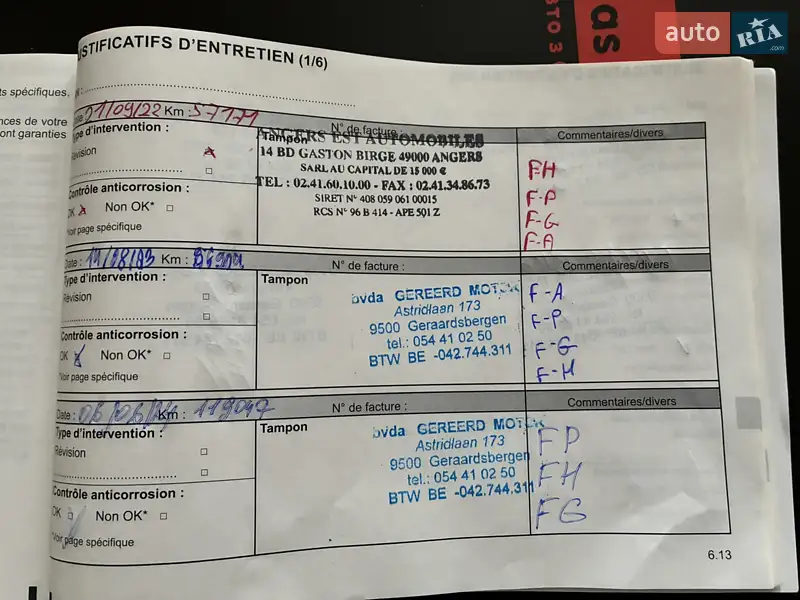 auto RIA .com
as
JSTIFICATIFS D'ENTRETIEN (1/6)
ts spécifiques.
nces de votre
ont garanties
01/09/22 Km : 57171
N° de facture :
Commentaires/divers
ype d'intervention :
Révision
Tampon
ANGERS EST AUTOMOBILES
14 BD GASTON BIRGE 49000 ANGERS
SARL AU CAPITAL DE 15 000 €
TEL : 02.41.60.10.00 - FAX : 02.41.34.86.73
SIRET N° 408 059 061 00015
RCS N° 96 B 414 - APE 501 Z
FH
F-P
F-G
F-A
Contrôle anticorrosion :
OK Non OK*
*Voir page spécifique
Date : Km :
N° de facture :
Commentaires/divers
Type d'intervention :
Révision
Tampon
bvda GEREERD MOTOR
Astridlaan 173
9500 Geraardsbergen
tel.: 054 41 02 50
BTW BE -042.744.311
F-A
F-P
F-G
F-H
Contrôle anticorrosion :
OK Non OK*
*Voir page spécifique
Date : 06/06/24 Km : 119047
N° de facture :
Commentaires/divers
Type d'intervention :
Révision
Tampon
bvda GEREERD MOTOR
Astridlaan 173
9500 Geraardsbergen
tel.: 054 41 02 50
BTW BE -042.744.311
FP
FH
FG
Contrôle anticorrosion :
OK Non OK*
*Voir page spécifique
6.13